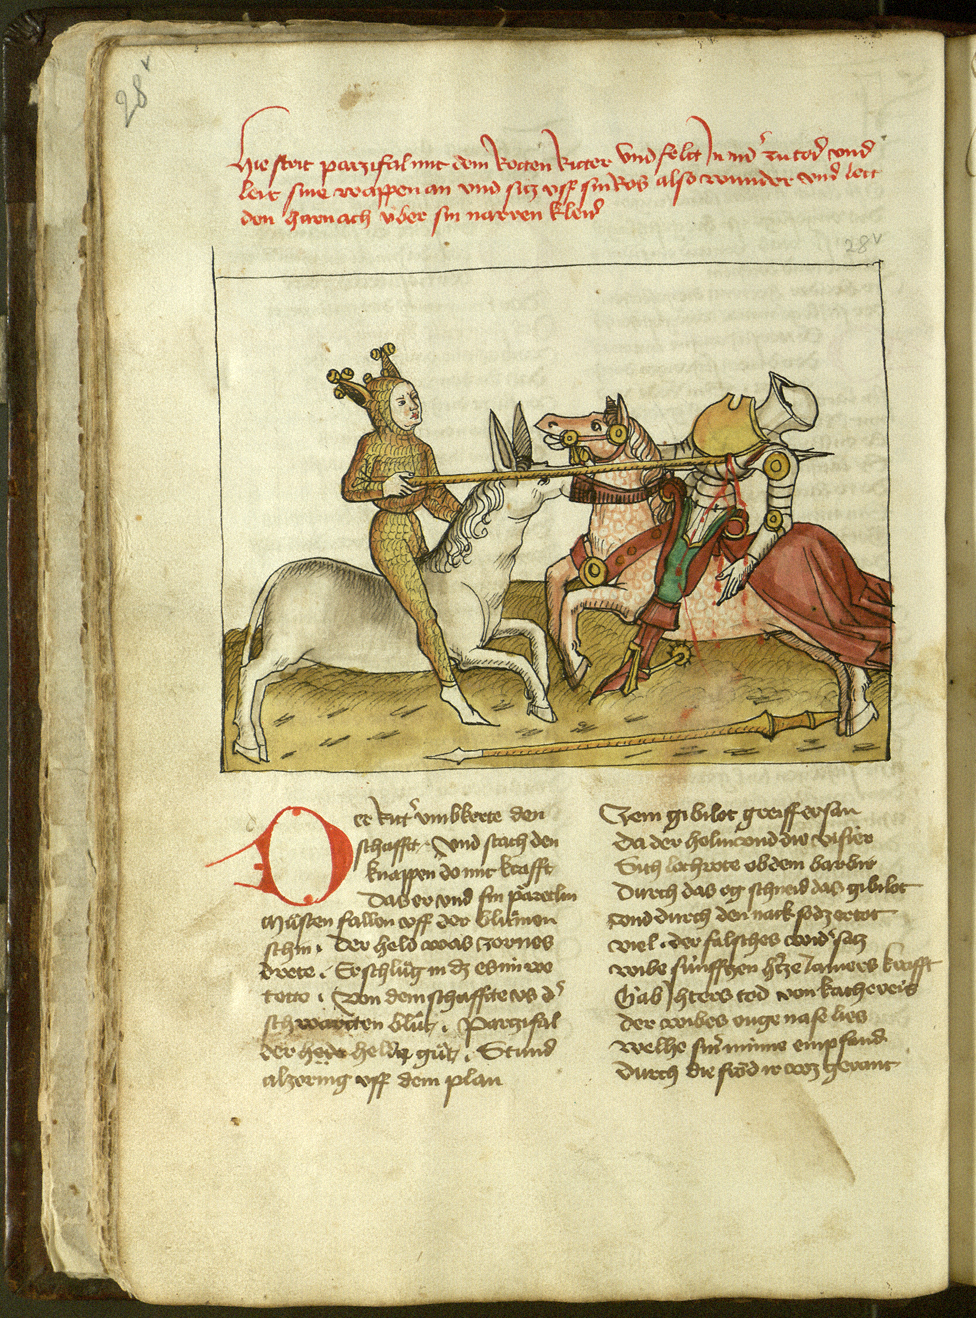 28v
Hie strit parzifal mit dem Rotten Ritter vnd felt zu tod vnd
leit sine wappen an vnd sitz vff sin Ros also wunder vnd leit
den harnach vber sin narren kleid
28v
Der Ritter vmbkerte den
schafft · vnd stach den
knappen do mit krafft
Das er vnd sin pfaerdlin
Müsten fallen vff der blümen
schin · Der held was zornes
drete · Er schlůg in dz es im we
tette · Von dem schaffte vs
schwartten blůt · Parzifal
der held gůt · Stund
al zornig vff dem plan
Sem gibilot greiff er san
Da der helm vnd die visier
Sich lochrote ob dem barbir
Durch das og schneid das gibilot
vnd durch den nack so dz er tot
viel · der falsches wider satz
wibe sünfftzen hertze Jamers krafft
Gab hters tod von kacheveis
der wibes ouge nase lies
welhe sin minne empfand
Durch die fröd ir waz gerant